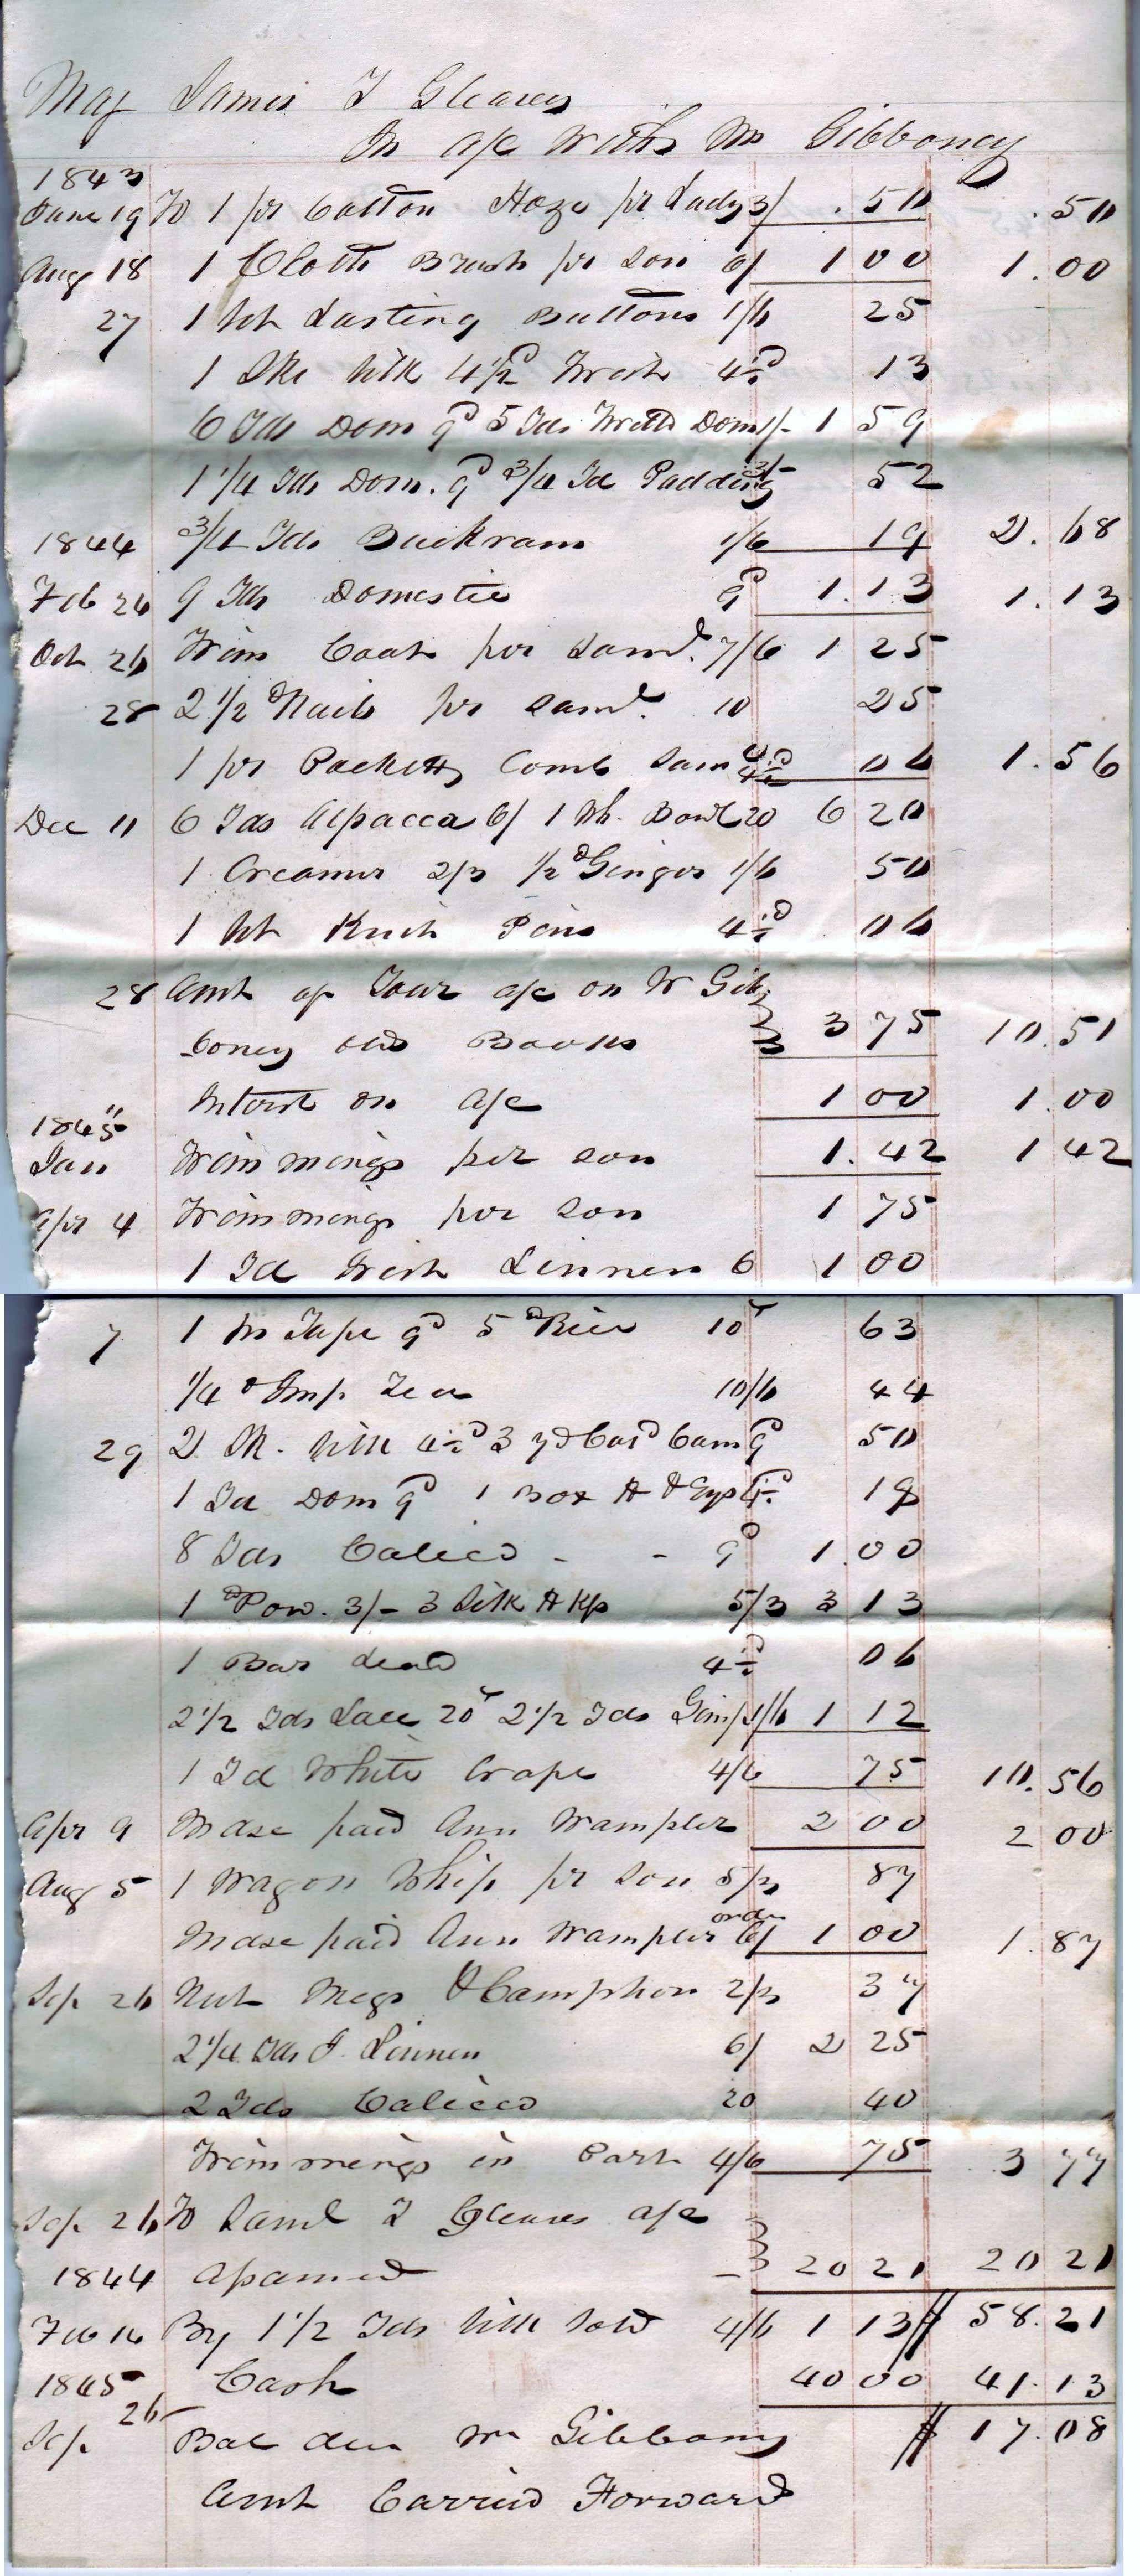 Maj James T Gleaves
In a/c with Wm Gibboney
1843
June 19 To 1 pr Cotton Hoze pr Lady 3/ .50 .50
Aug 18 1 Cloth Brush pr son 6/ 1 00 1.00
27 1 Lasting Buttons 1/6 25
1 Ske Silk 4½d Twist 4½d 13
6 Yds Dom 9d 5 Yds Twilld Dom 1/- 1 59
1 1/4 Yds Dom. 9d 3/4 Yd Padding 3/- 52
1844 3/4 Yds Buckram 1/6 19 2.68
Feb 26 9 Yds Domestic 9d 1.13 1.13
Oct 26 Trim Coat per Saml. 7/6 1 25
28 2 1/2 Nails pr Saml. 10 25
1 pr Pocketts Comb Saml 4½d 06 1.56
Dec 11 6 Yds Alpacca 6/ 1 Wh. Bowl 20 6 20
1 Creamer 2/3 1/2 Ginger 1/6 50
1 Pins 4½d 06
28 Amt of Your a/c on W Gib
boney old Books 3 75 10.51
Intrest on a/c 1 00 1.00
1845
Jan Trimmings per son 1.42 1 42
Apr 4 Trimmings per son 1 75
1 Yd Irish Linnen 6 1 00
7 1 Tape 9d 5 Rice 10 63
1/4 Imp. Tea 10/6 44
29 2 Sk. Silk 4½d 3 yd Cold Cam 9d 50
1 Yd Dom 9d 1 Box H & Eyes 4½d 19
8 Yds Calico - - 9d 1.00
1 Pow. 3/- 3 Silk H Kfs 5/3 3 13
1 Bar Lead 4½d 06
2 1/2 Yds Lace 20 2 1/2 Yds Gimp 1/6 1 12
1 Yd White Crape 4/6 75 10.56
Apr 9 Mdse paid Ann Wampler 2 00 2 00
Aug 5 1 Wagon Whip pr Son 5/3 87
Mdse paid Ann Wampler order 6/ 1 00 1.87
Sep 26 Nut Megs & Camphor 2/3 37
2 1/4 Yds I. Linnen 6/ 2 25
2 Yds Calico 20 40
Trimmings in Part 4/6 75 3 77
Sep 26 To Saml T Gleaves a/c
1844 Asamed - 20 21 20 21
Feb 16 By 1 1/2 Yds Silk Sold 4/6 1 13 $ 58.21
1845 Cash 40 00 41.13
Sep 26 Bal due Wm Gibbony $ 17.08
Amt Carried Forward